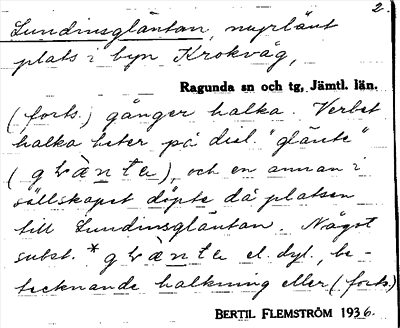 2.
Lundinsgläntan, nuprlänt
plats i byn Krokvåg,
Ragunda sn och tg, Jämtl. län.
(forts.) gånger halka. Verbet
halka heter på dial. "glänte"
( ), och en annan i
sällskapet döpte då platsen
till Lundinsgläntan. Något
subst. * el. dyl., be-
tecknande halkning eller (forts.)
BERTIL FLEMSTRÖM 1936.